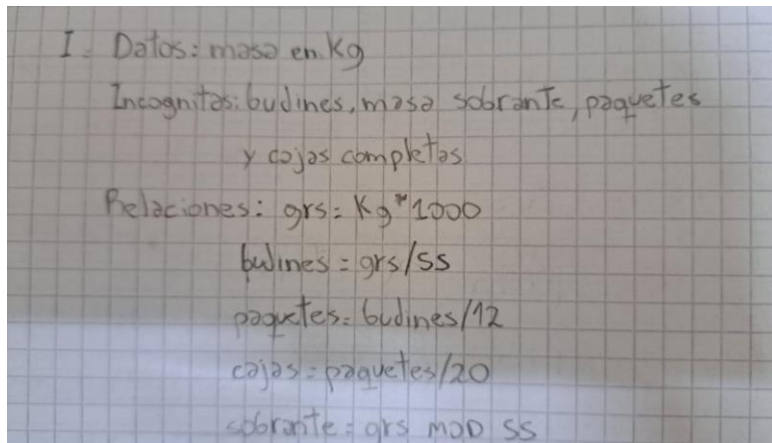 I. Datos: masa en Kg
Incognitas: budines, masa sobrante, paquetes
y cajas completas
Relaciones: grs = Kg * 1000
budines = grs/55
paquetes = budines/12
cajas = paquetes/20
sobrante = grs MOD 55